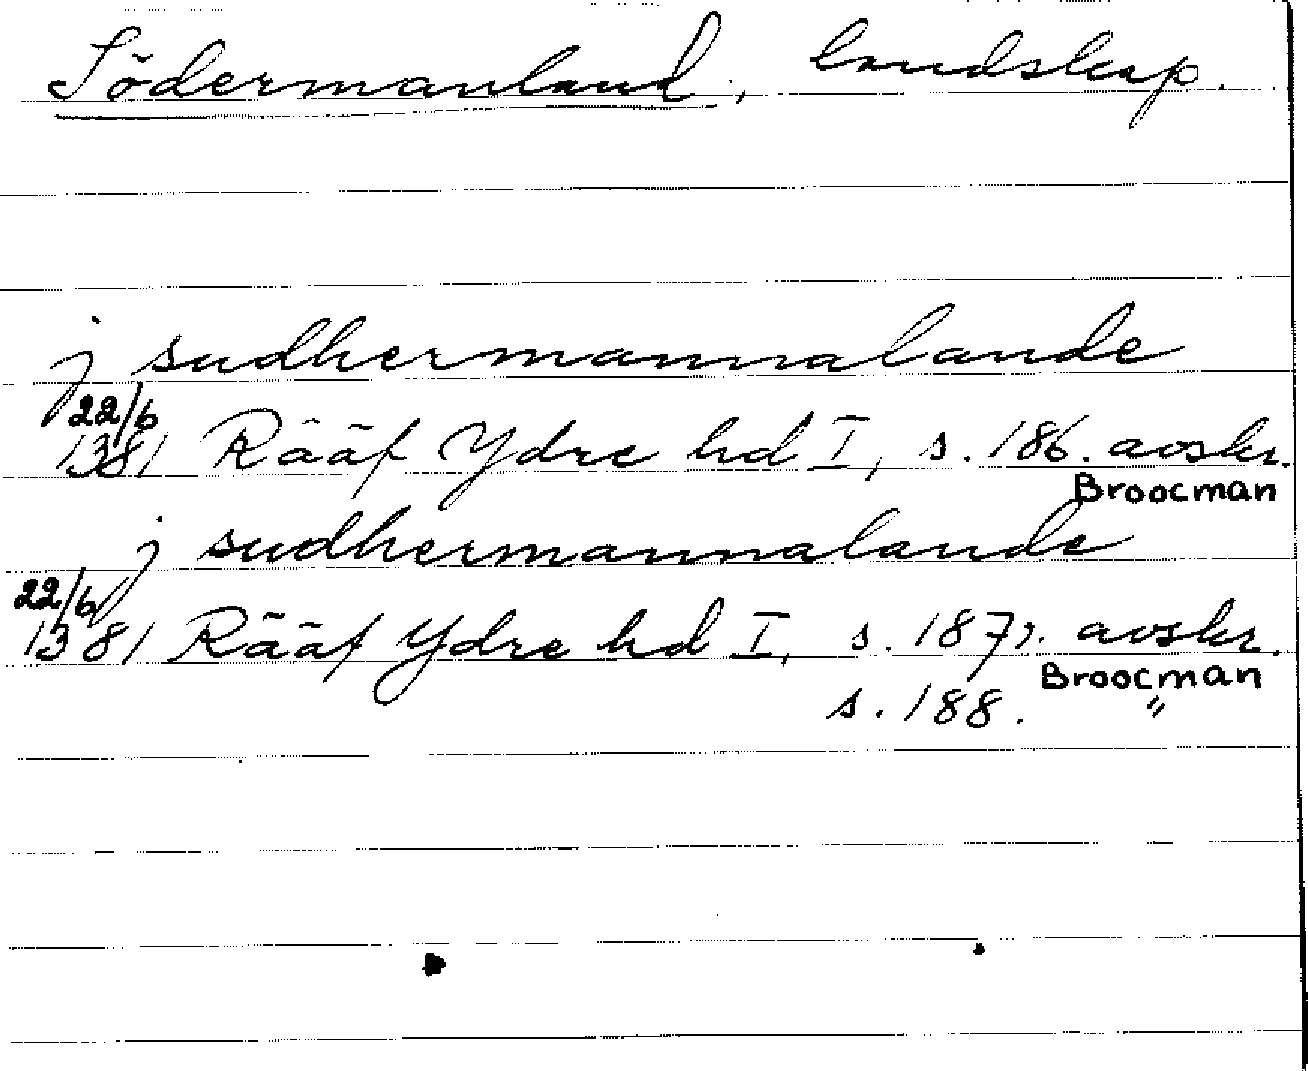 Södermanland, landskap.
j sudhermannalande
22/6
1381 Rääf Ydre hd I, s. 186. avskr.
Broocman
j sudhermannalande
22/6
1381 Rääf Ydre hd I, s. 187, avskr.
Broocman
s. 188. "